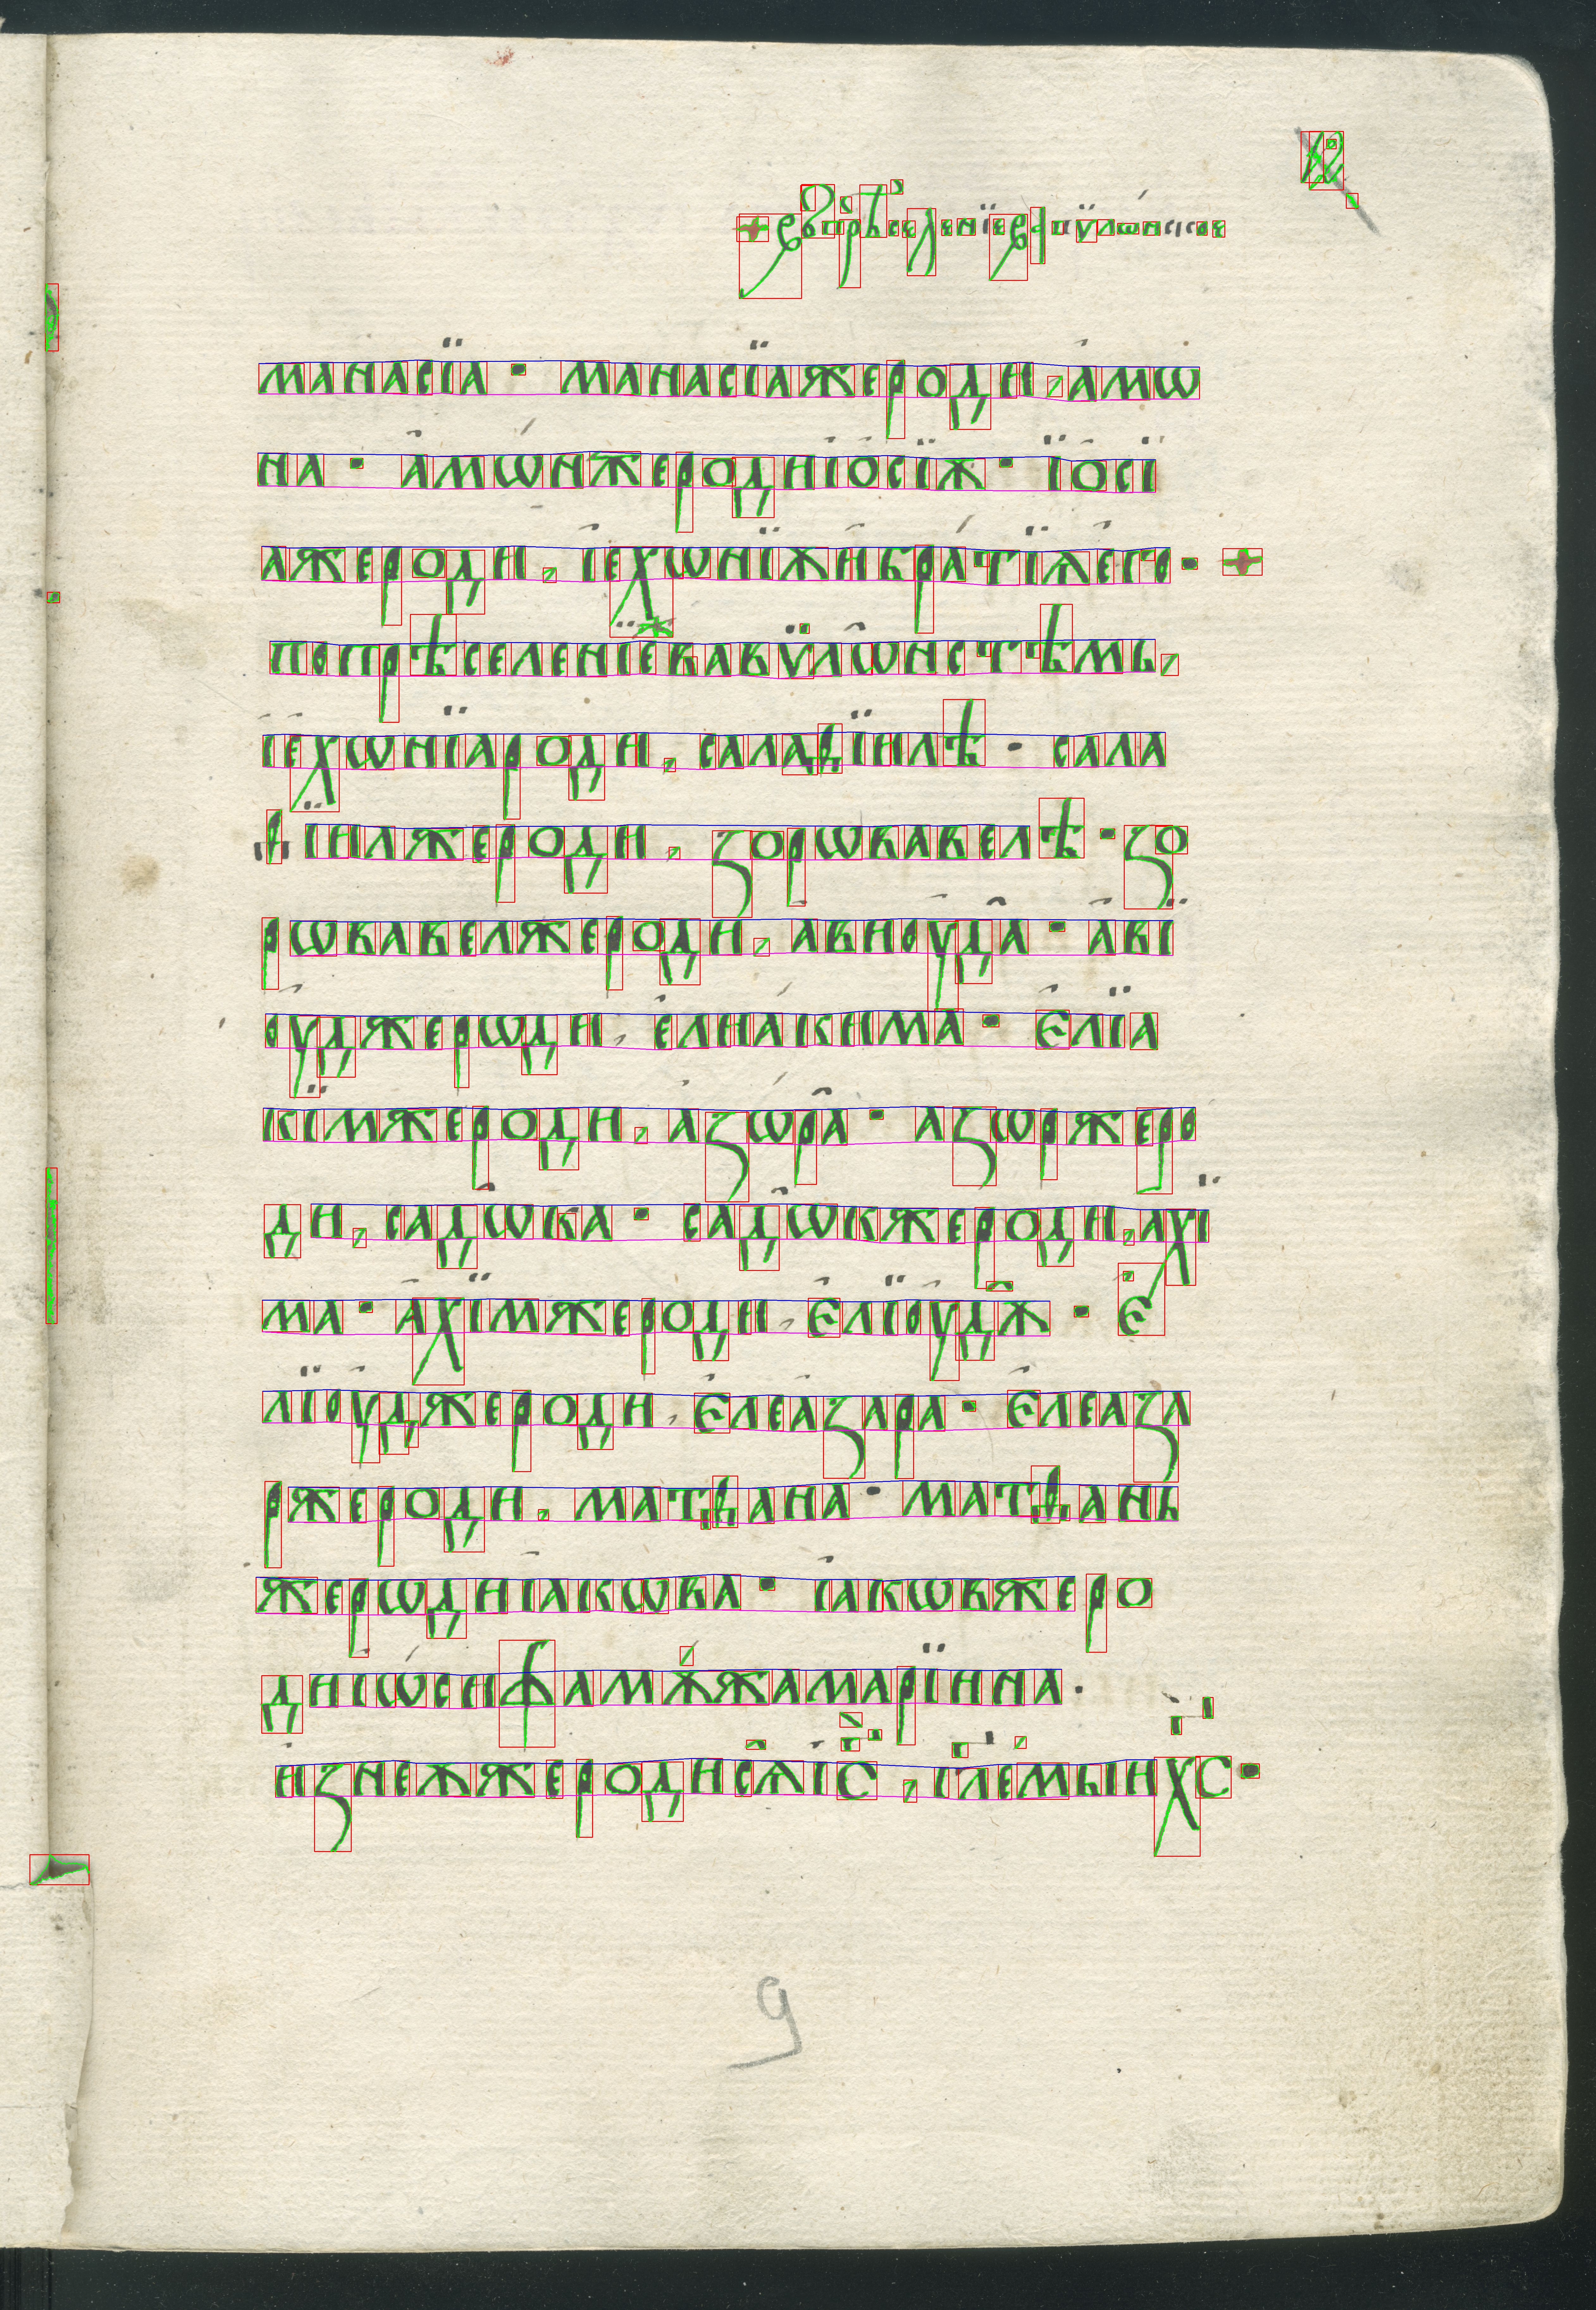 12
+ въ прѣселенїе вапѵлѡнское
манасїа · манасїа же роди, амѡ
на · амѡн же роди іосїѫ · їосї
а же роди, іехѡнїѫ и братїѫ его · +
по прѣселенїе вавѵлѡнстѣмь,
іехѡнїа роди, салаѳїилѣ · сала
ѳїил же роди, зорѡвавелѣ · зо
рѡвавел же роди, авиоуда · аві
оуд же рѡди, елиакима · Єліа
кїм же роди, азѡра · азѡр же ро
ди, садѡка · садѡк же роди, ахї
ма · ахїм же роди, Єлїоудѫ · Є
лїоуд же роди, Єлеазара · Єлеаза
р же роди, матѳана · матѳань
же рѡди іакѡва · іакѡв же ро
ди іѡсифа мѫжа марїина ·
из неѫ же роди сѧ іс, глемыи хс ·
9